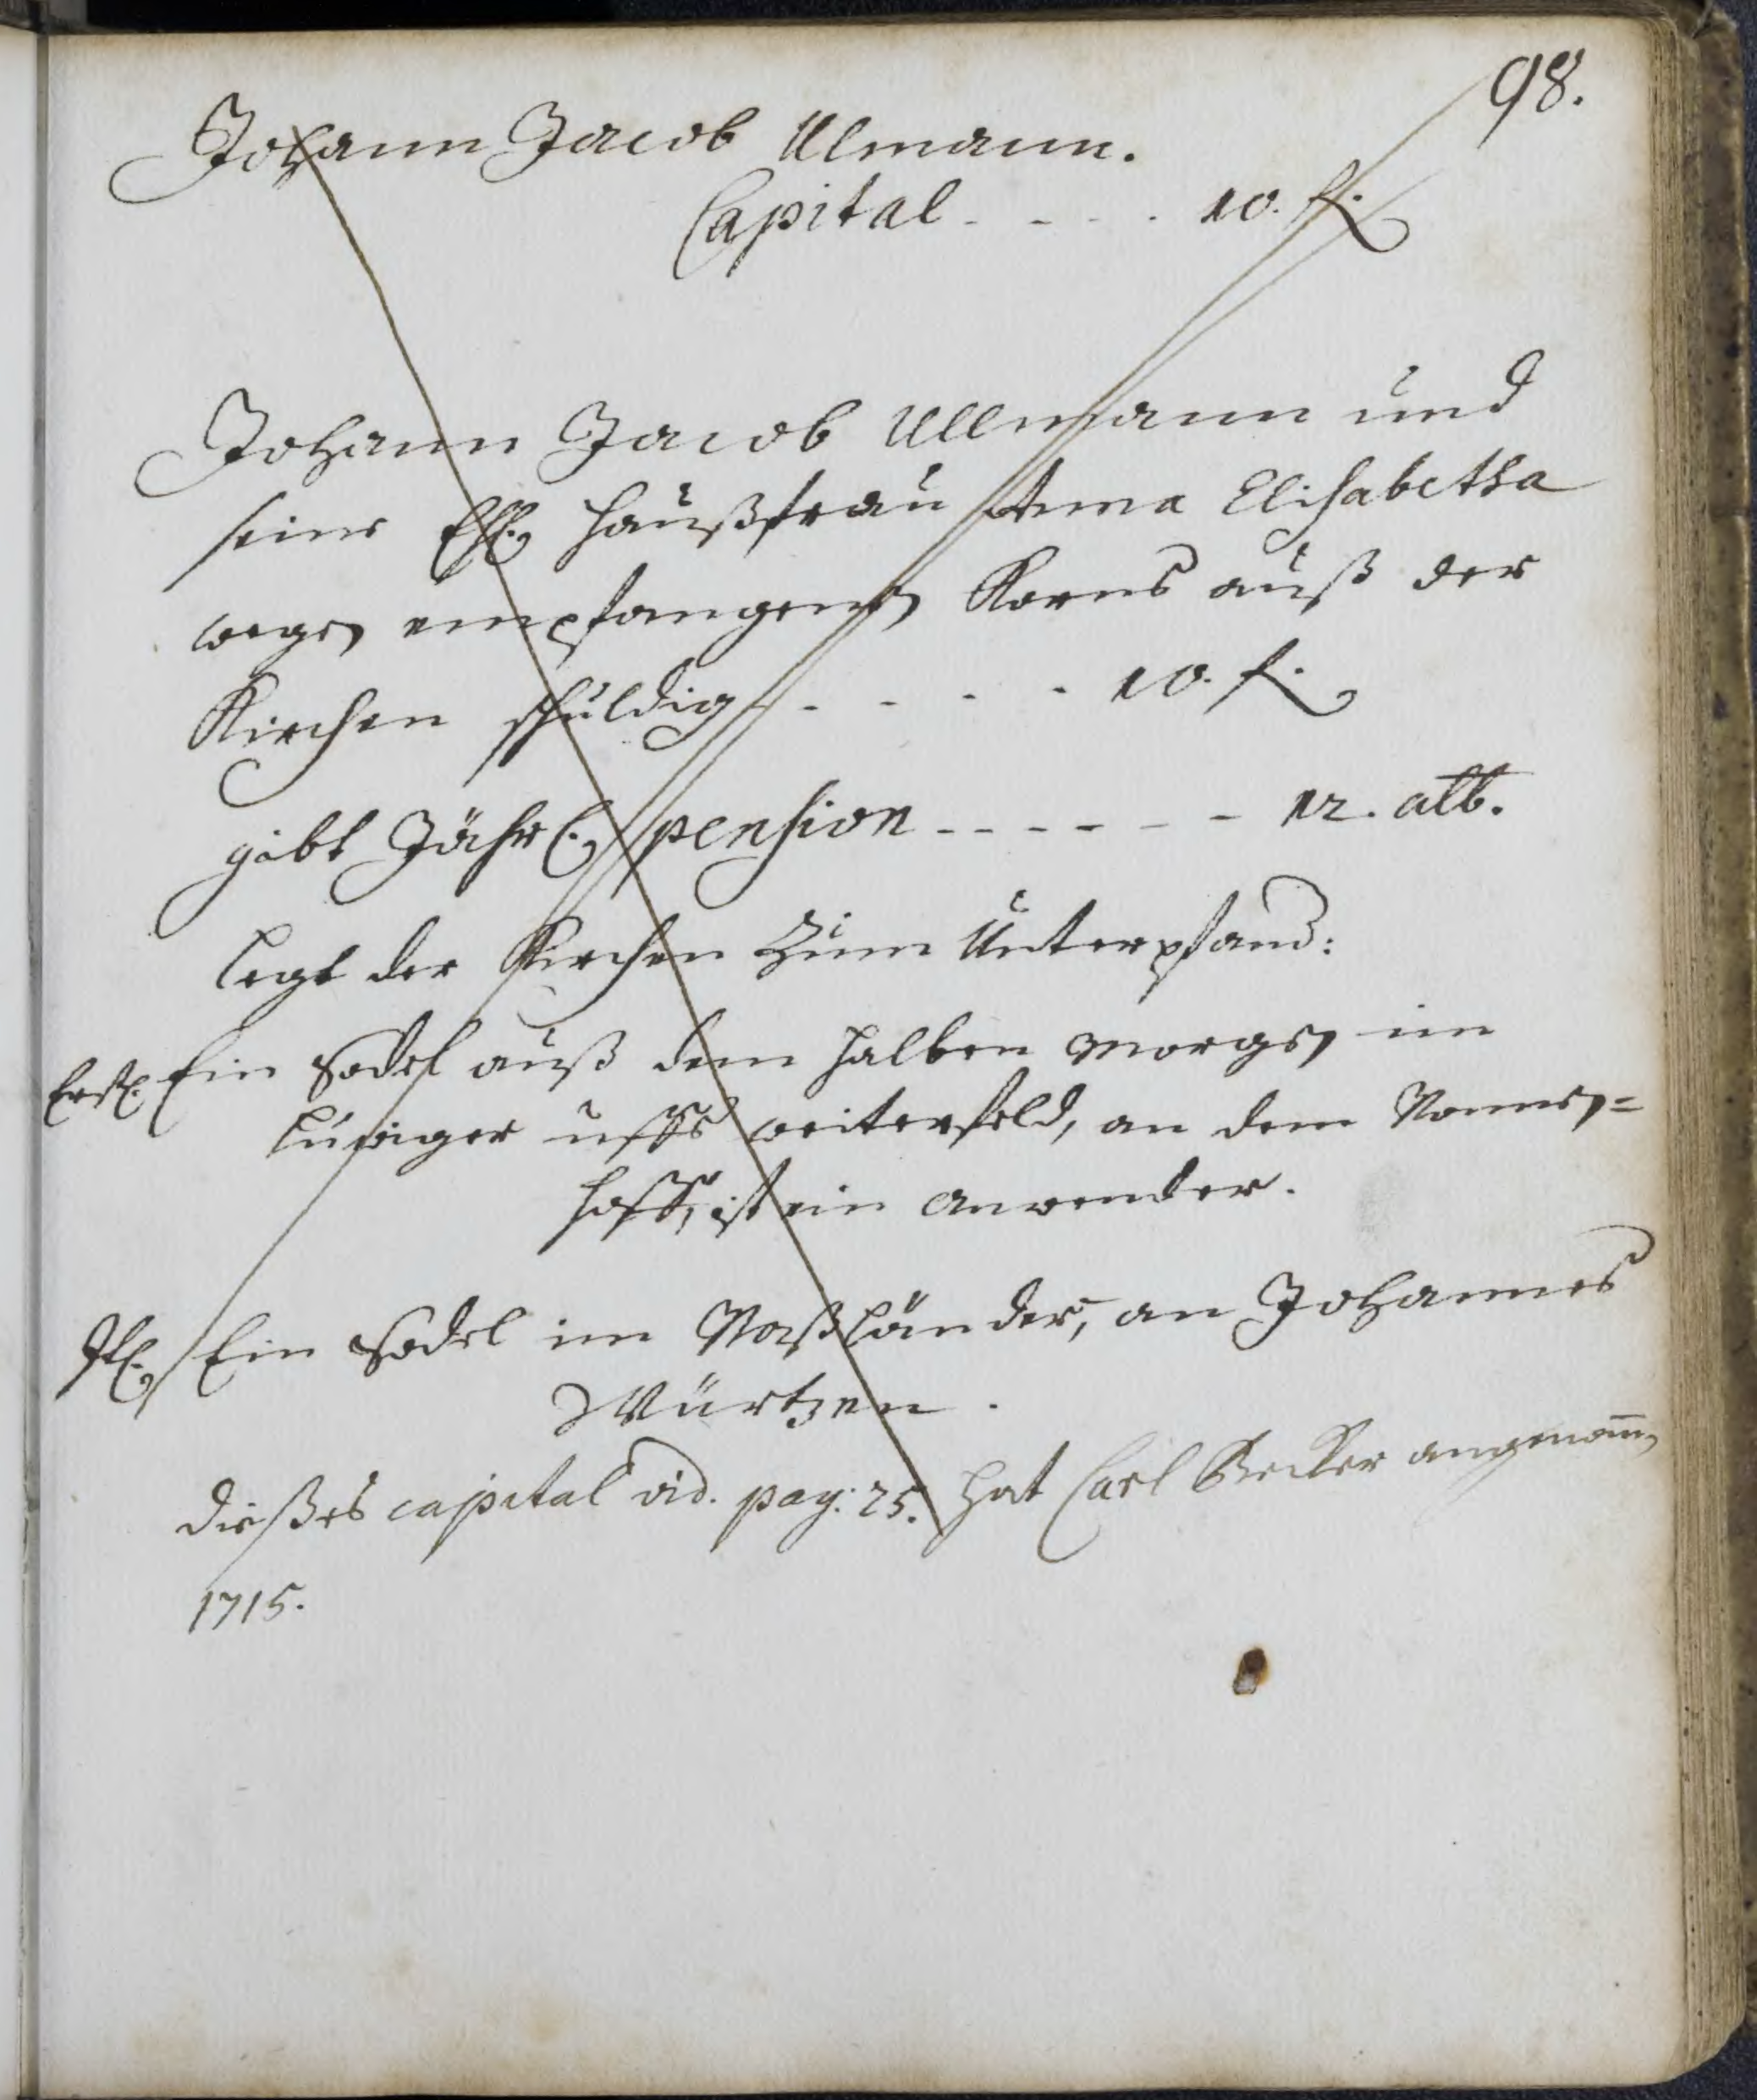 98.
Johann Jacob Ulmann.
Capital - - - - 10. fl.
Johann Jacob Ullmann und
seine Ehl. Haußfrau Anna Elisabetha
wegen empfangenen Korns auß der
Kirchen schuldig - - - - 10. fl.
gibt Jährl. pension - - - - - - 12. alb.
Legt der Kirchen zum Unterpfand:
Erstl. Ein Sodel auß dem halben Morgen im
uffs weiterfeld, an dem Nonnen=
hoff, ist ein Anwender.
It. Ein Sodel im, an Johannes
Würtzen.
dießes capital vid. pag: 25. hat Carl Becker angenom̄en
1715.